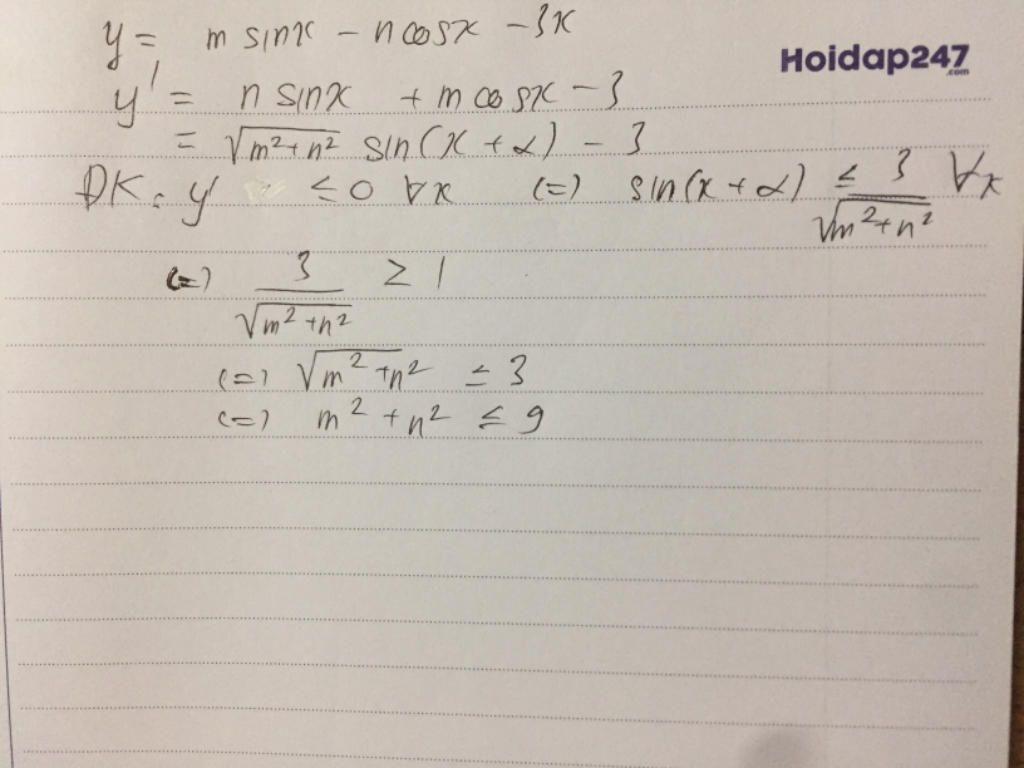 y = m sinx - n cosx - 3x
Hoidap247
.com
y' = n sinx + m cosx - 3
= √(m²+n²) sin(x + α) - 3
ĐK: y' ≤ 0 ∀x (=) sin(x + α) ≤ 3/√(m²+n²) ∀x
(=) 3/√(m²+n²) ≥ 1
(=) √(m²+n²) ≤ 3
(=) m² + n² ≤ 9